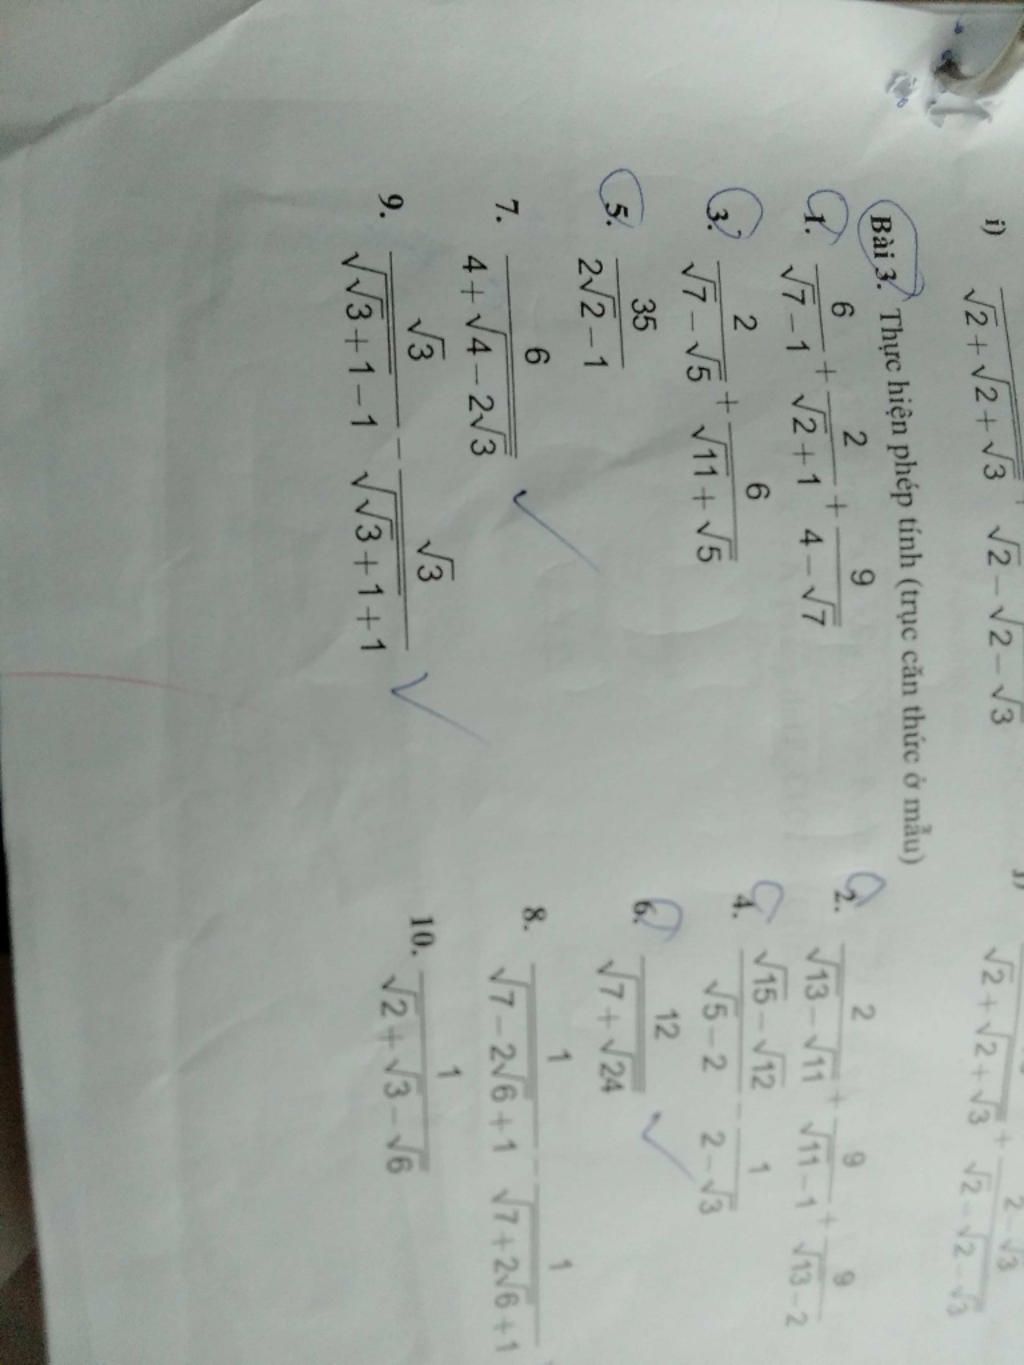 i) 1/(√2+√(2+√3)) + 1/(√2-√(2-√3))
j) /(√2+√(2+√3)) + (2-√3)/(√2-√(2-√3))
Bài 3. Thực hiện phép tính (trục căn thức ở mẫu)
1. 6/(√7-1) + 2/(√2+1) + 9/(4-√7)
2. 2/(√13-√11) + 9/(√11-1) + 9/(√13-2)
3. 2/(√7-√5) + 6/(√11+√5)
4. (√15-√12)/(√5-2) - 1/(2-√3)
5. 35/(2√2-1)
6. 12/√(7+√24)
7. 6/(4+√(4-2√3))
8. 1/(√(7-2√6)+1) - 1/(√(7+2√6)+1)
9. √3/(√(√3+1)-1) - √3/(√(√3+1)+1)
10. 1/(√2+√3-√6)